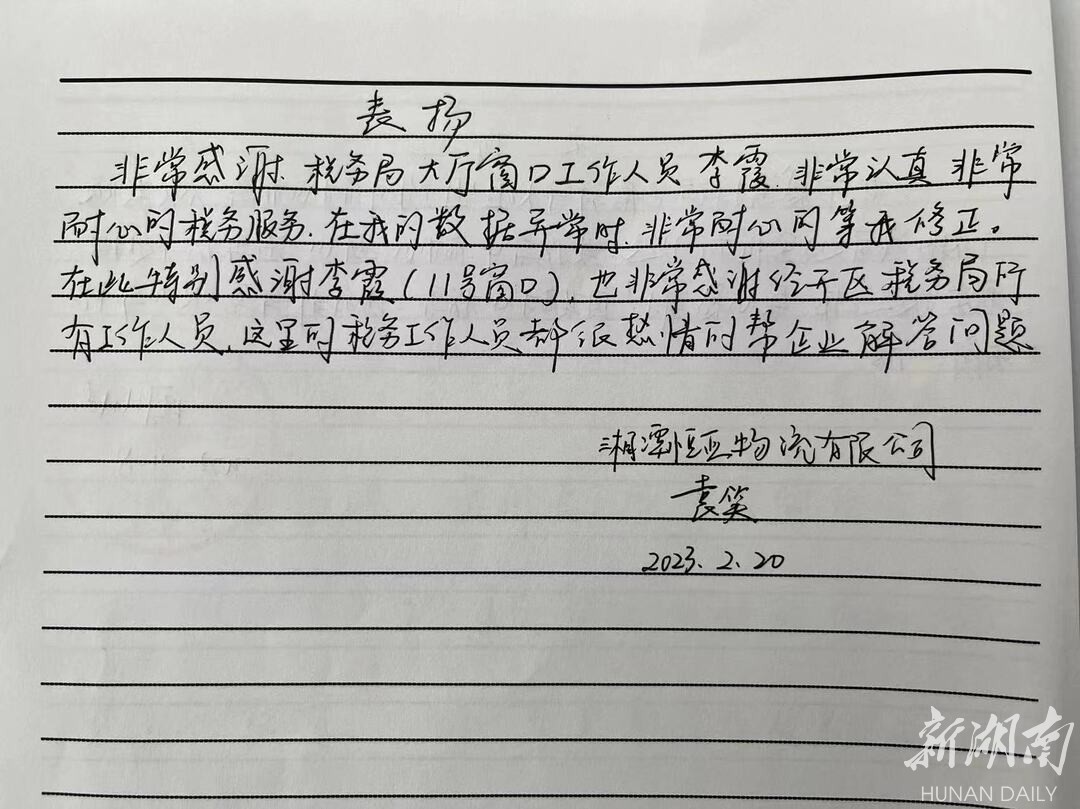 表扬
非常感谢.税务局大厅窗口工作人员李霞.非常认真非常
耐心的税务服务.在我的数据异常时.非常耐心的等我修正。
在此特别感谢李霞(11号窗口),也非常感谢经开区税务局所
有工作人员,这里的税务工作人员都很热情的帮企业解答问题
湘潭恒亚物流有限公司
袁笑
2023.2.20
新湖南
HUNAN DAILY